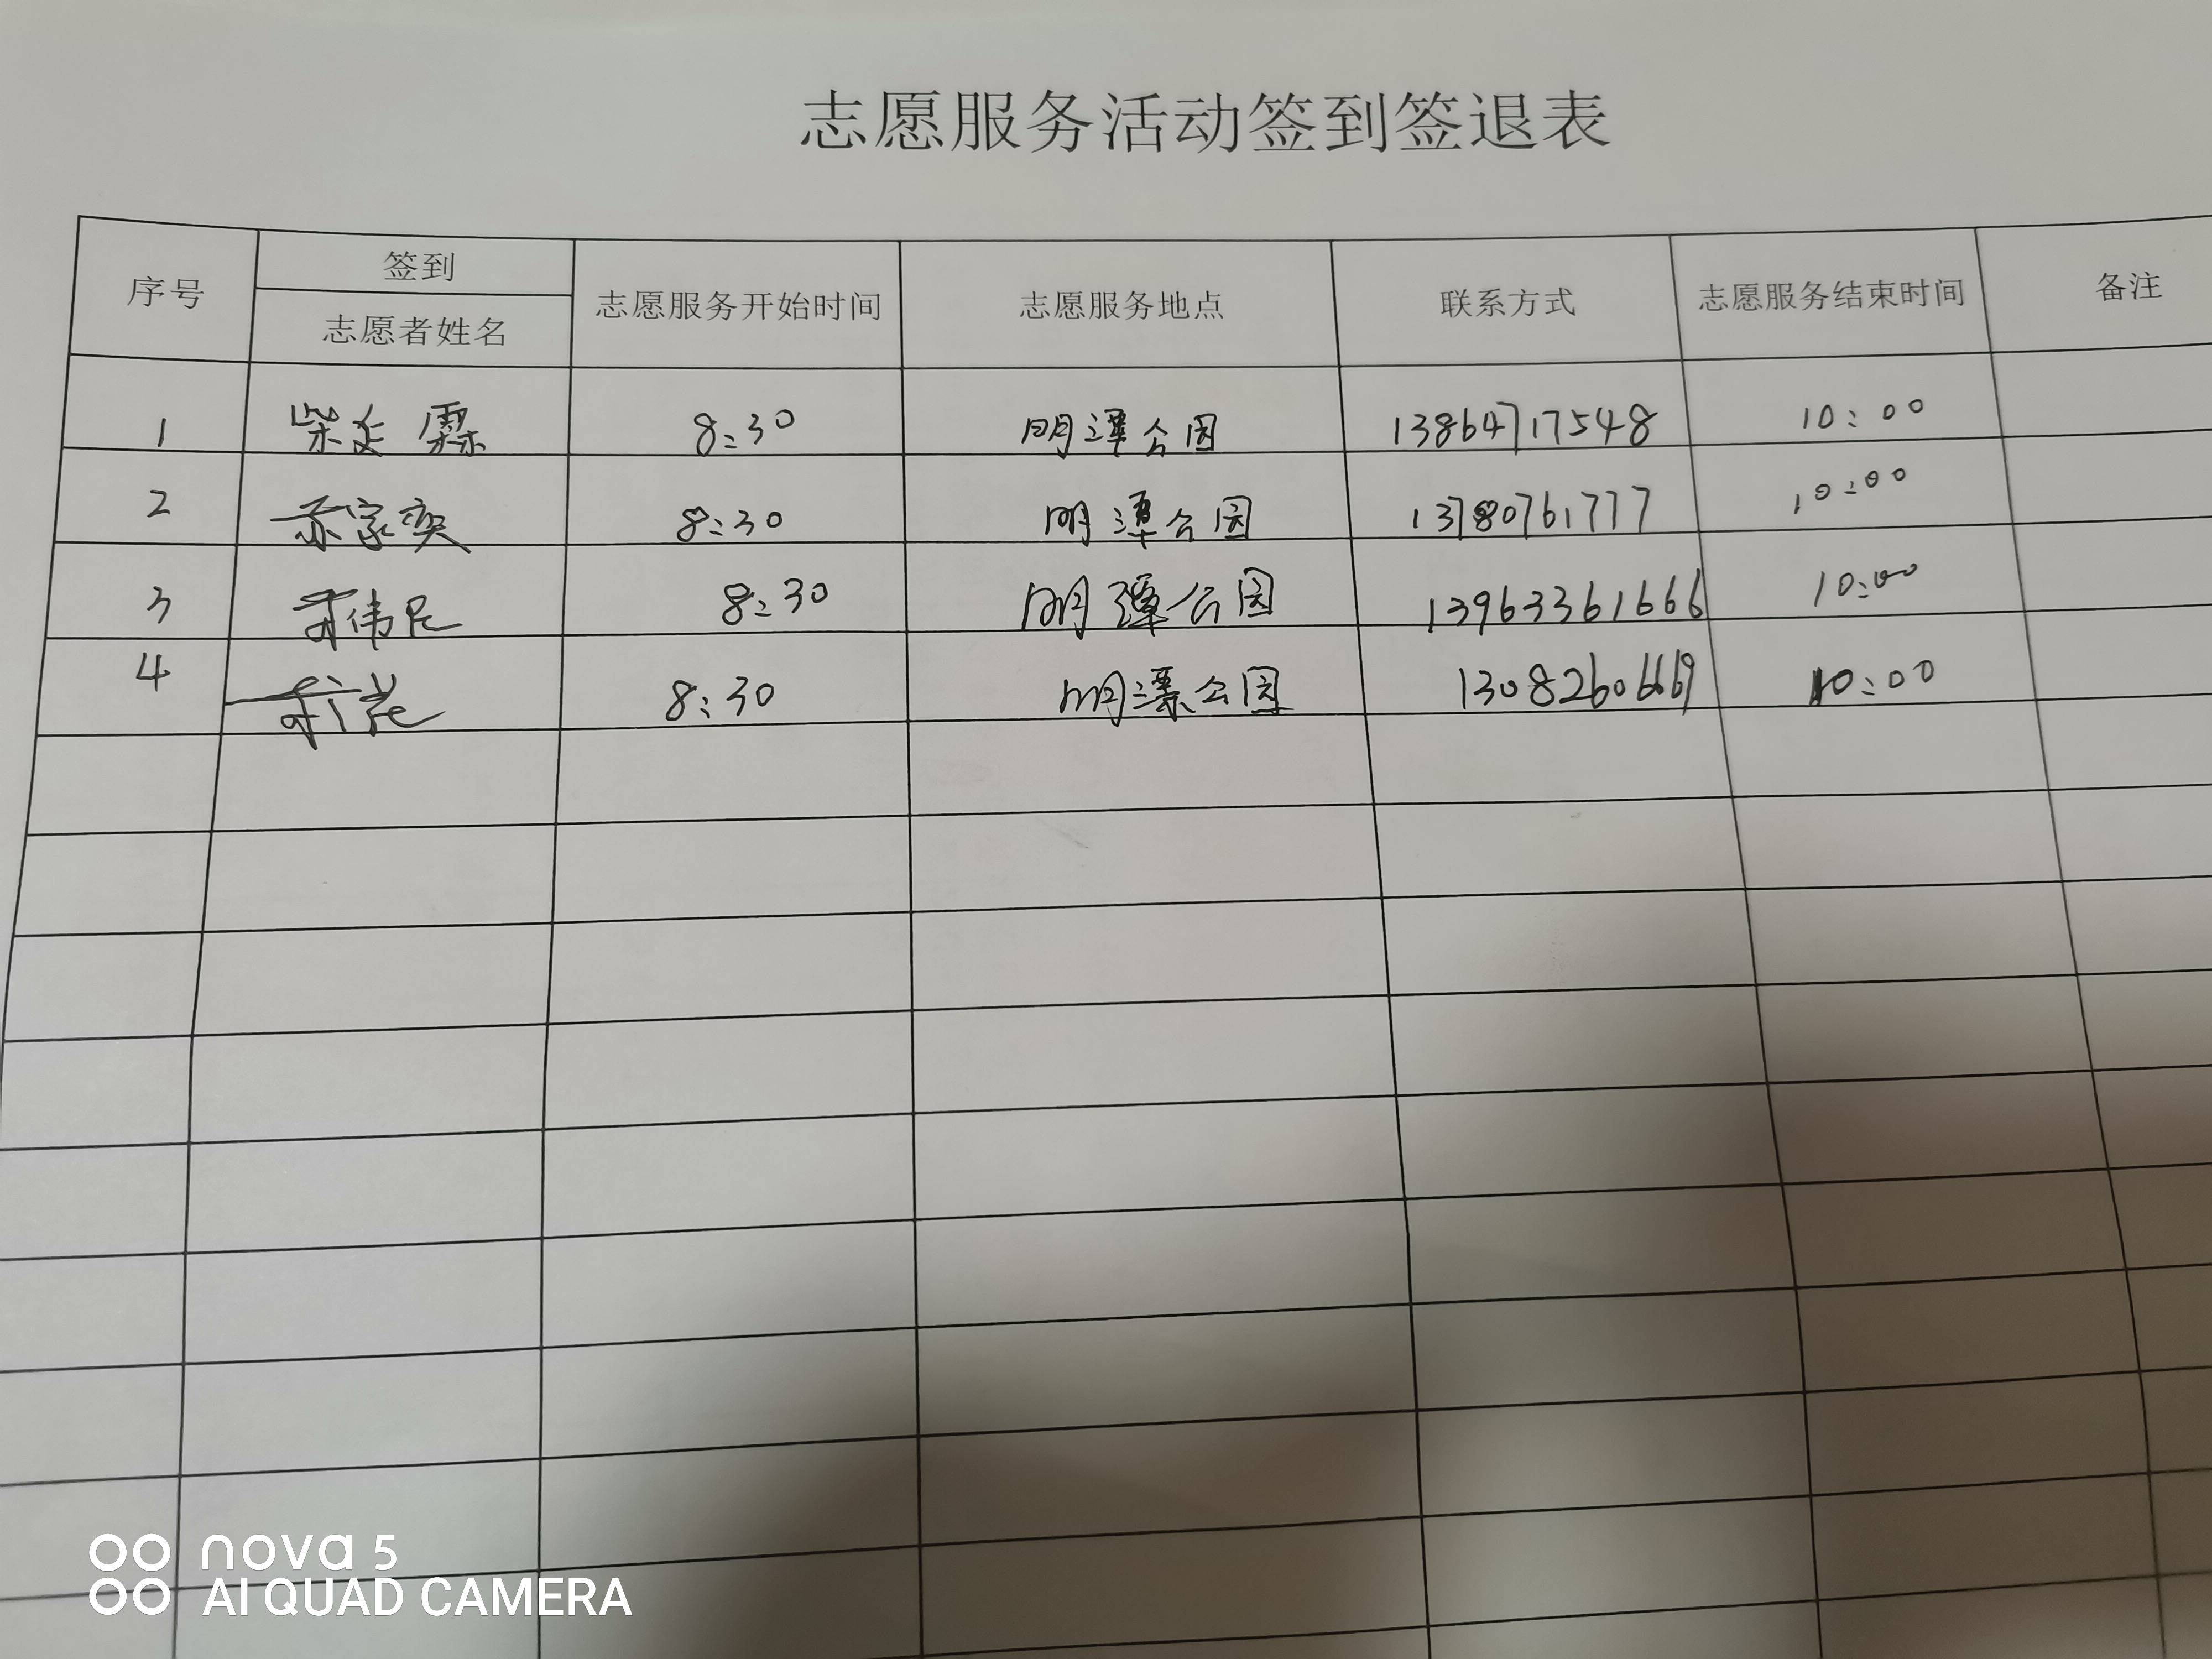 志愿服务活动签到签退表
序号 签到 志愿者姓名 志愿服务开始时间 志愿服务地点 联系方式 志愿服务结束时间 备注
1 柴廷霖 8:30 明潭公园 13864717548 10:00
2 家奕 8:30 明潭公园 13780761777 10:00
3 伟民 8:30 明潭公园 13963361666 10:00
4 8:30 明潭公园 13082606669 10:00
nova 5
AI QUAD CAMERA